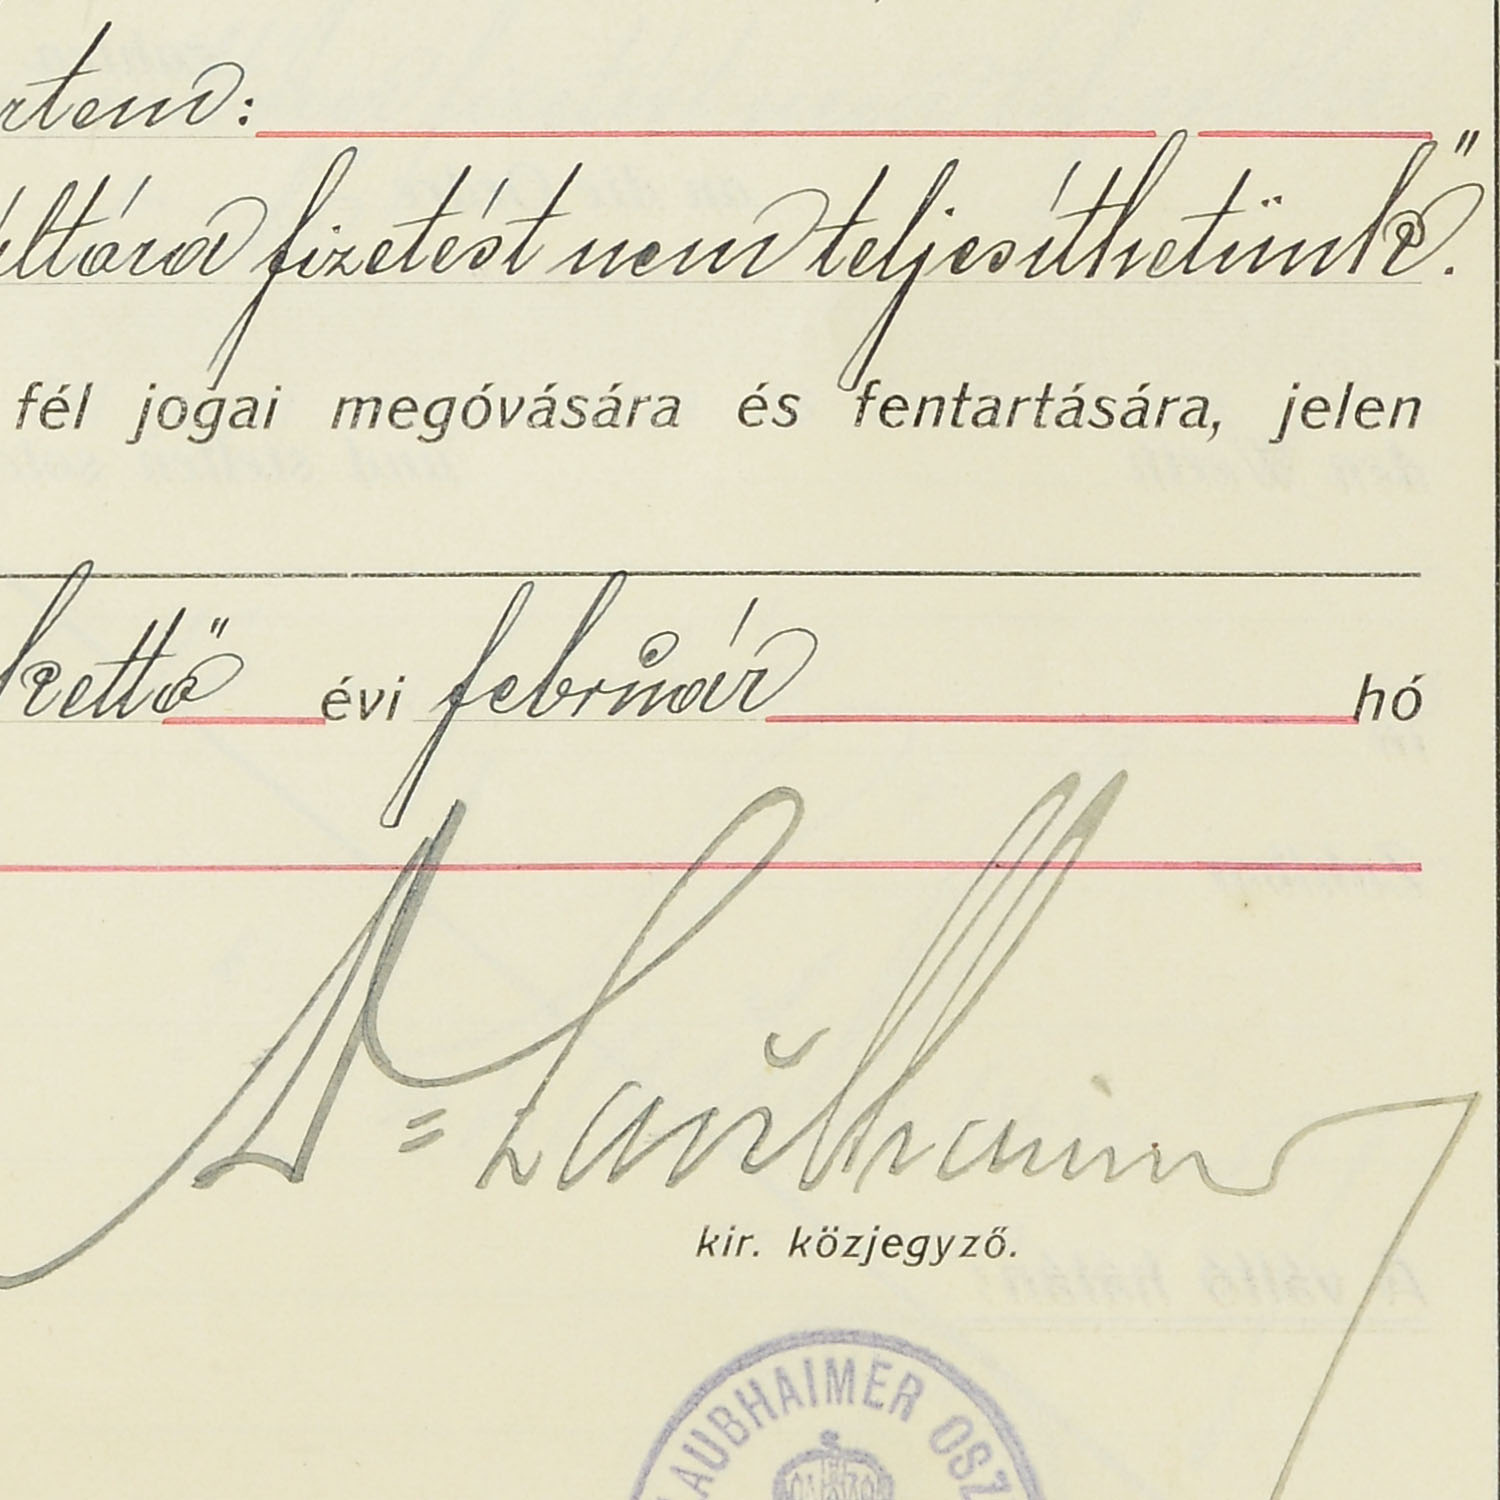 rtem:
últára fizetést nem teljesíthetünk."
fél jogai megóvására és fentartására, jelen
kettő évi február hó
Dr. Laubhaimer
kir. közjegyző.
LAUBHAIMER OSZ